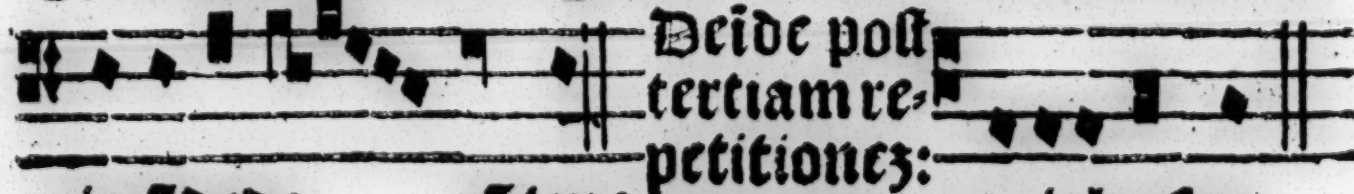 Deīde poſt
tertiam re⸗
petitionez: